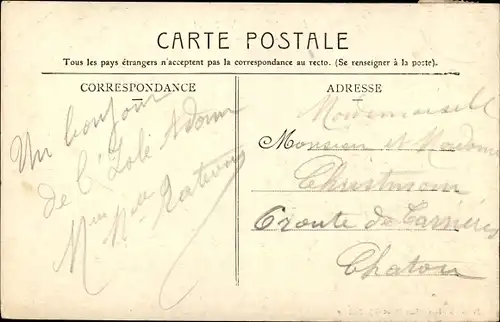 CARTE POSTALE
Tous les pays étrangers n'acceptent pas la correspondance au recto. (Se renseigner à la poste).
CORRESPONDANCE
Un bonjour
de l'
Mme
ADRESSE
Mademoiselle
Monsieur et Madame
6 route de Carrières
Chatou